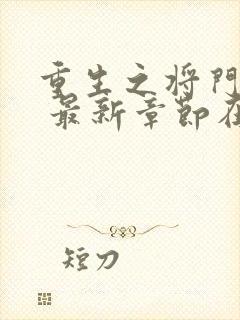 重生之将門
最新章節在
短刀